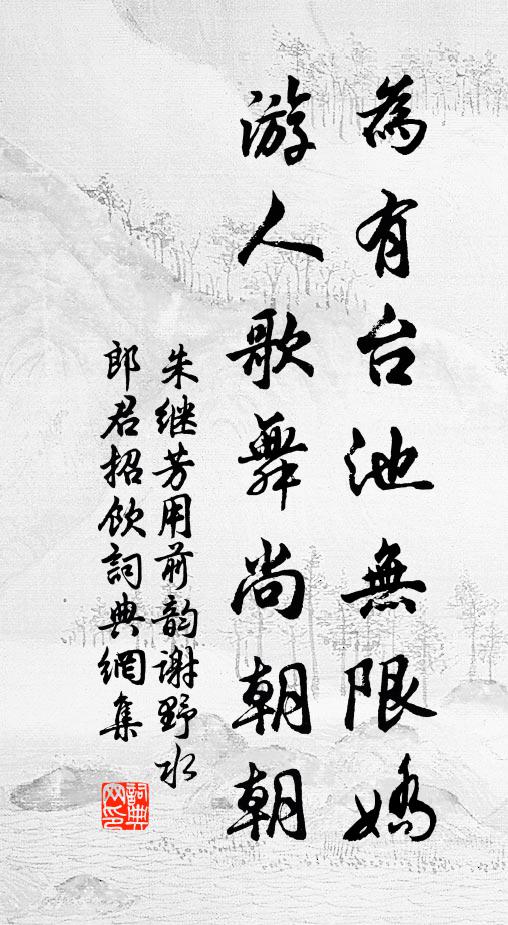 為有台池無限嬌
游人歌舞尚朝朝
朱继芳用前韵謝野水
郎君招飲詞典網集
詞典
网印